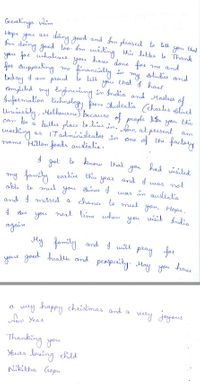 Greetings
Hope you are doing good and I'm pleased to tell you that
I'm doing good too. I'm writing this letter to Thank
you for whatever you have done for me and
for supporting me financially in my studies and
today I am proud to tell you that I have
completed my Engineering in India and Masters of
Information technology from Australia (Charles Sturt
University, Melbourne) because of people like you this
can be a better place to live in. I'm at present am
working as IT administrator in one of the factory
name Hilton foods australia.
I got to know that you had visited
my family earlier this year and I was not
able to meet you since I was in australia
and I missed a chance to meet you. Hope,
I see you next time when you visit India
again
My family and I will pray for
your good health and prosperity. May you have
a very happy christmas and a very joyous
New Year
Thanking you
Yours loving child
Nikitha